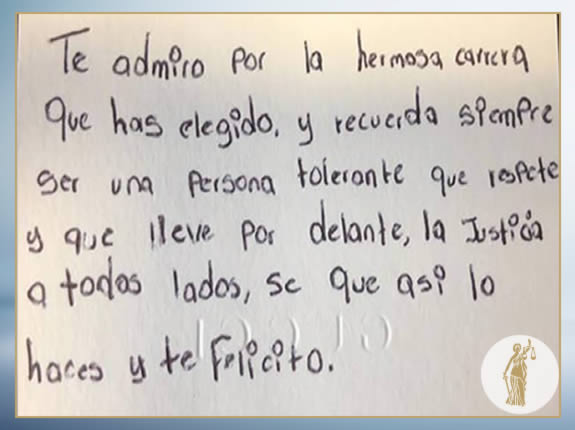 Te admiro por la hermosa carrera
que has elegido, y recuerda siempre
ser una persona tolerante que respete
y que lleve por delante, la Justicia
a todos lados, se que asi lo
haces y te felicito.